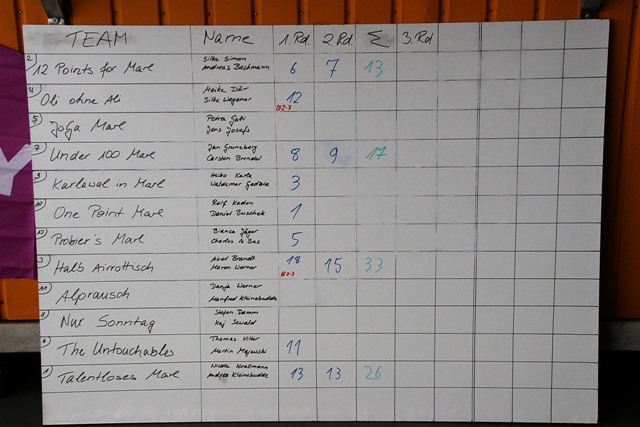 TEAM Name 1.Rd. 2.Rd. Σ 3.Rd
2 12 Points for Marl Silke Simon 6 7 13
Andreas Bechmann
4 Oli ohne Ali Heike Dörr 12
Silke Wegener
5 JoGa Marl Petra Gati
Jens Josefs
7 Under 100 Marl Jan 8 9 17
Carsten Brendel
9 Karlawal in Marl Heiko Karla 3
Waldemar
10 One Point Marl Ralf Kaden 1
Daniel Buschek
Prober's Marl Bianca Jäger 5
Charles le Bas
3 Halb Airrottisch Axel Brandt 18 15 33
Maren Werner
11 Alprausch Danja Werner
Manfred Kleinebudde
8 Nur Sonntag Stefan Damm
Kaj Sewald
6 The Untouchables Thomas 11
Martin Majewski
1 Talentloses Marl Nicole Krallmann 13 13 26
Andrea Kleinebudde